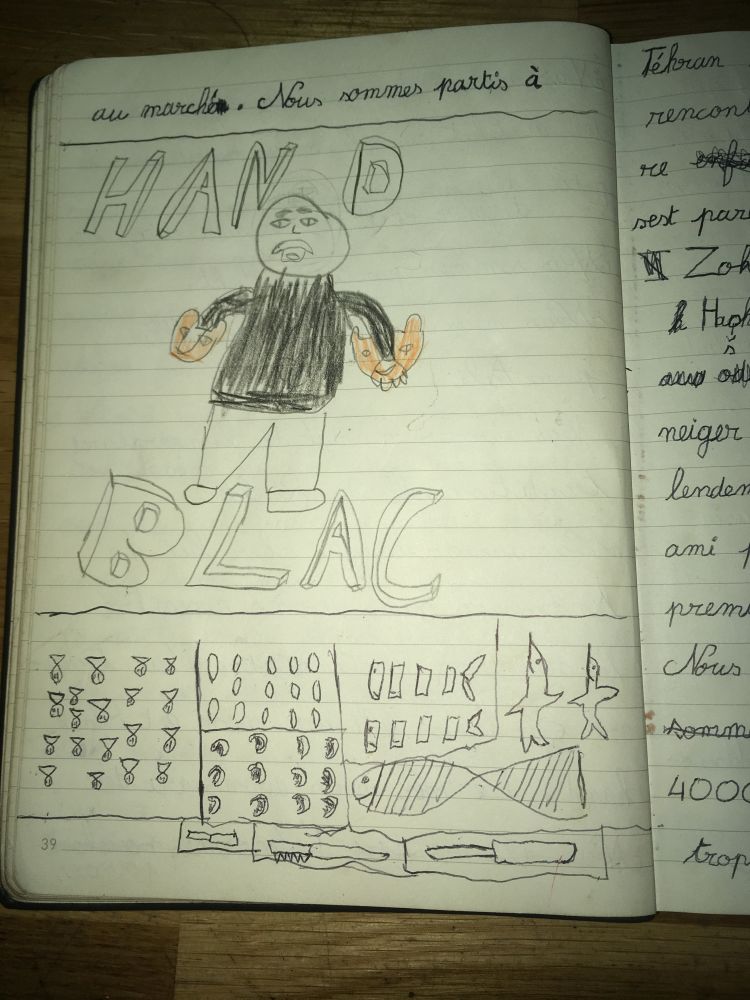 au marché. Nous sommes partis à
HAND
BLAC
39
Téhran
rencon
re
sest par
Zoh
Haph
neiger
lendem
ami p
premi
Nous
somm
4000
trop